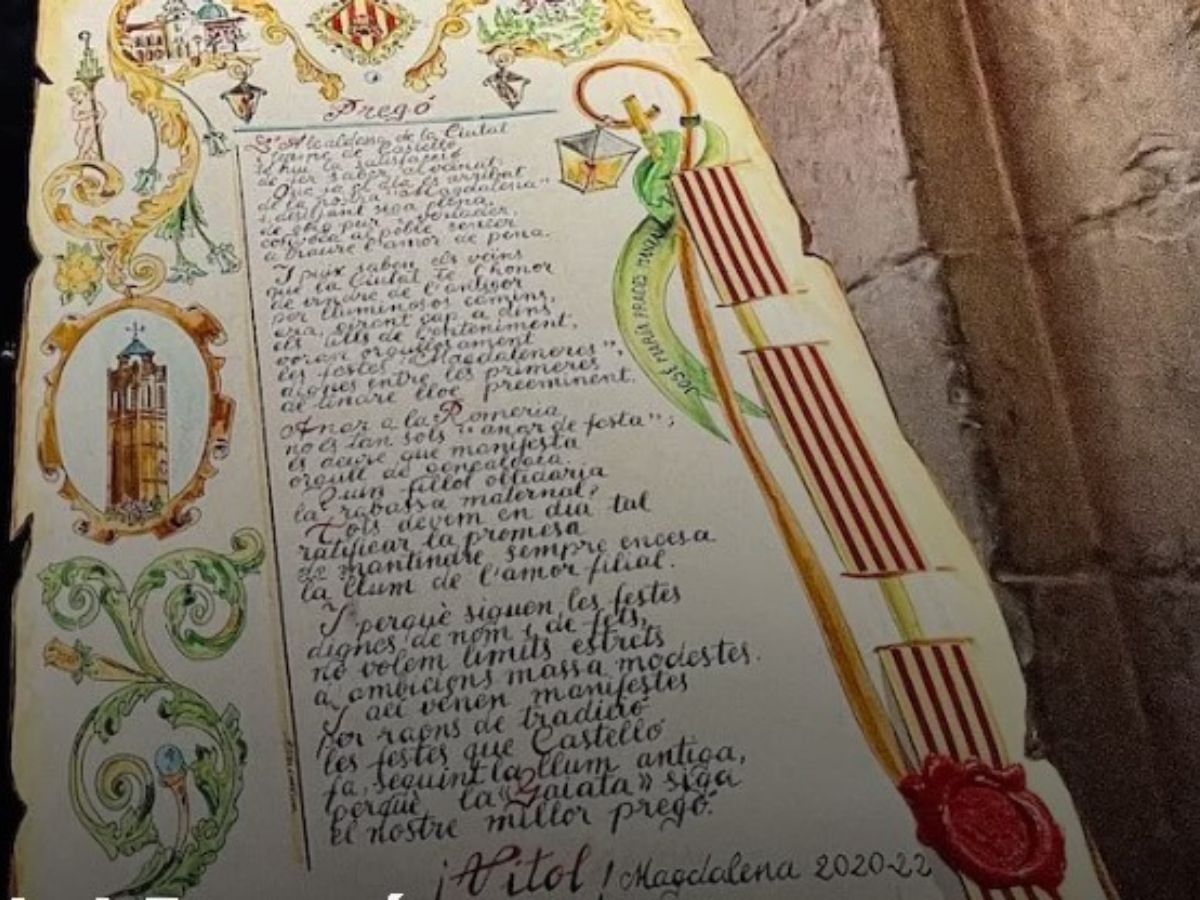 Pregó
L'Alcaldesa de la Ciutat
i terme de Castelló
té hui la satisfacció
de fer saber, al veïnat,
Que ja el dia és arribat
de la nostra "Magdalena"
i, desitjant siga plena,
de goig pur i
convoca al poble sencer
a traure l'amor de pena.
I puix saben els veïns
que la Ciutat té l'honor
de vindre de l'antigor
per lluminosos camins,
ara, girant cap a dins
els ulls de l'enteniment,
voran orgullosament
les festes "Magdaleneres",
dignes entre les primeres
de tindre lloc preeminent.
Anar a la Romeria
no és tan sols "anar de festa";
és davre que manifesta
orgull de
Quin fillol oblidaria
la rabassa maternal?
Tots devem en dia tal
ratificar la promesa
de mantindre sempre encesa
la llum de l'amor filial.
I perquè siguen les festes
dignes de nom i de fets,
no volem límits estrets
a ambicions massa modestes.
I ací venen manifestes
per raons de tradició
les festes que Castelló
fa, seguint la llum antiga,
perquè la «Gaiata» siga
el nostre millor pregó.
¡Vitol! Magdalena 2020-22
JOSÉ MARÍA PRADES